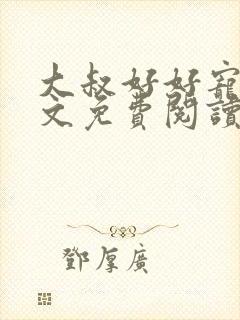 大叔好好寵
文免費閱讀
鄧厚廣